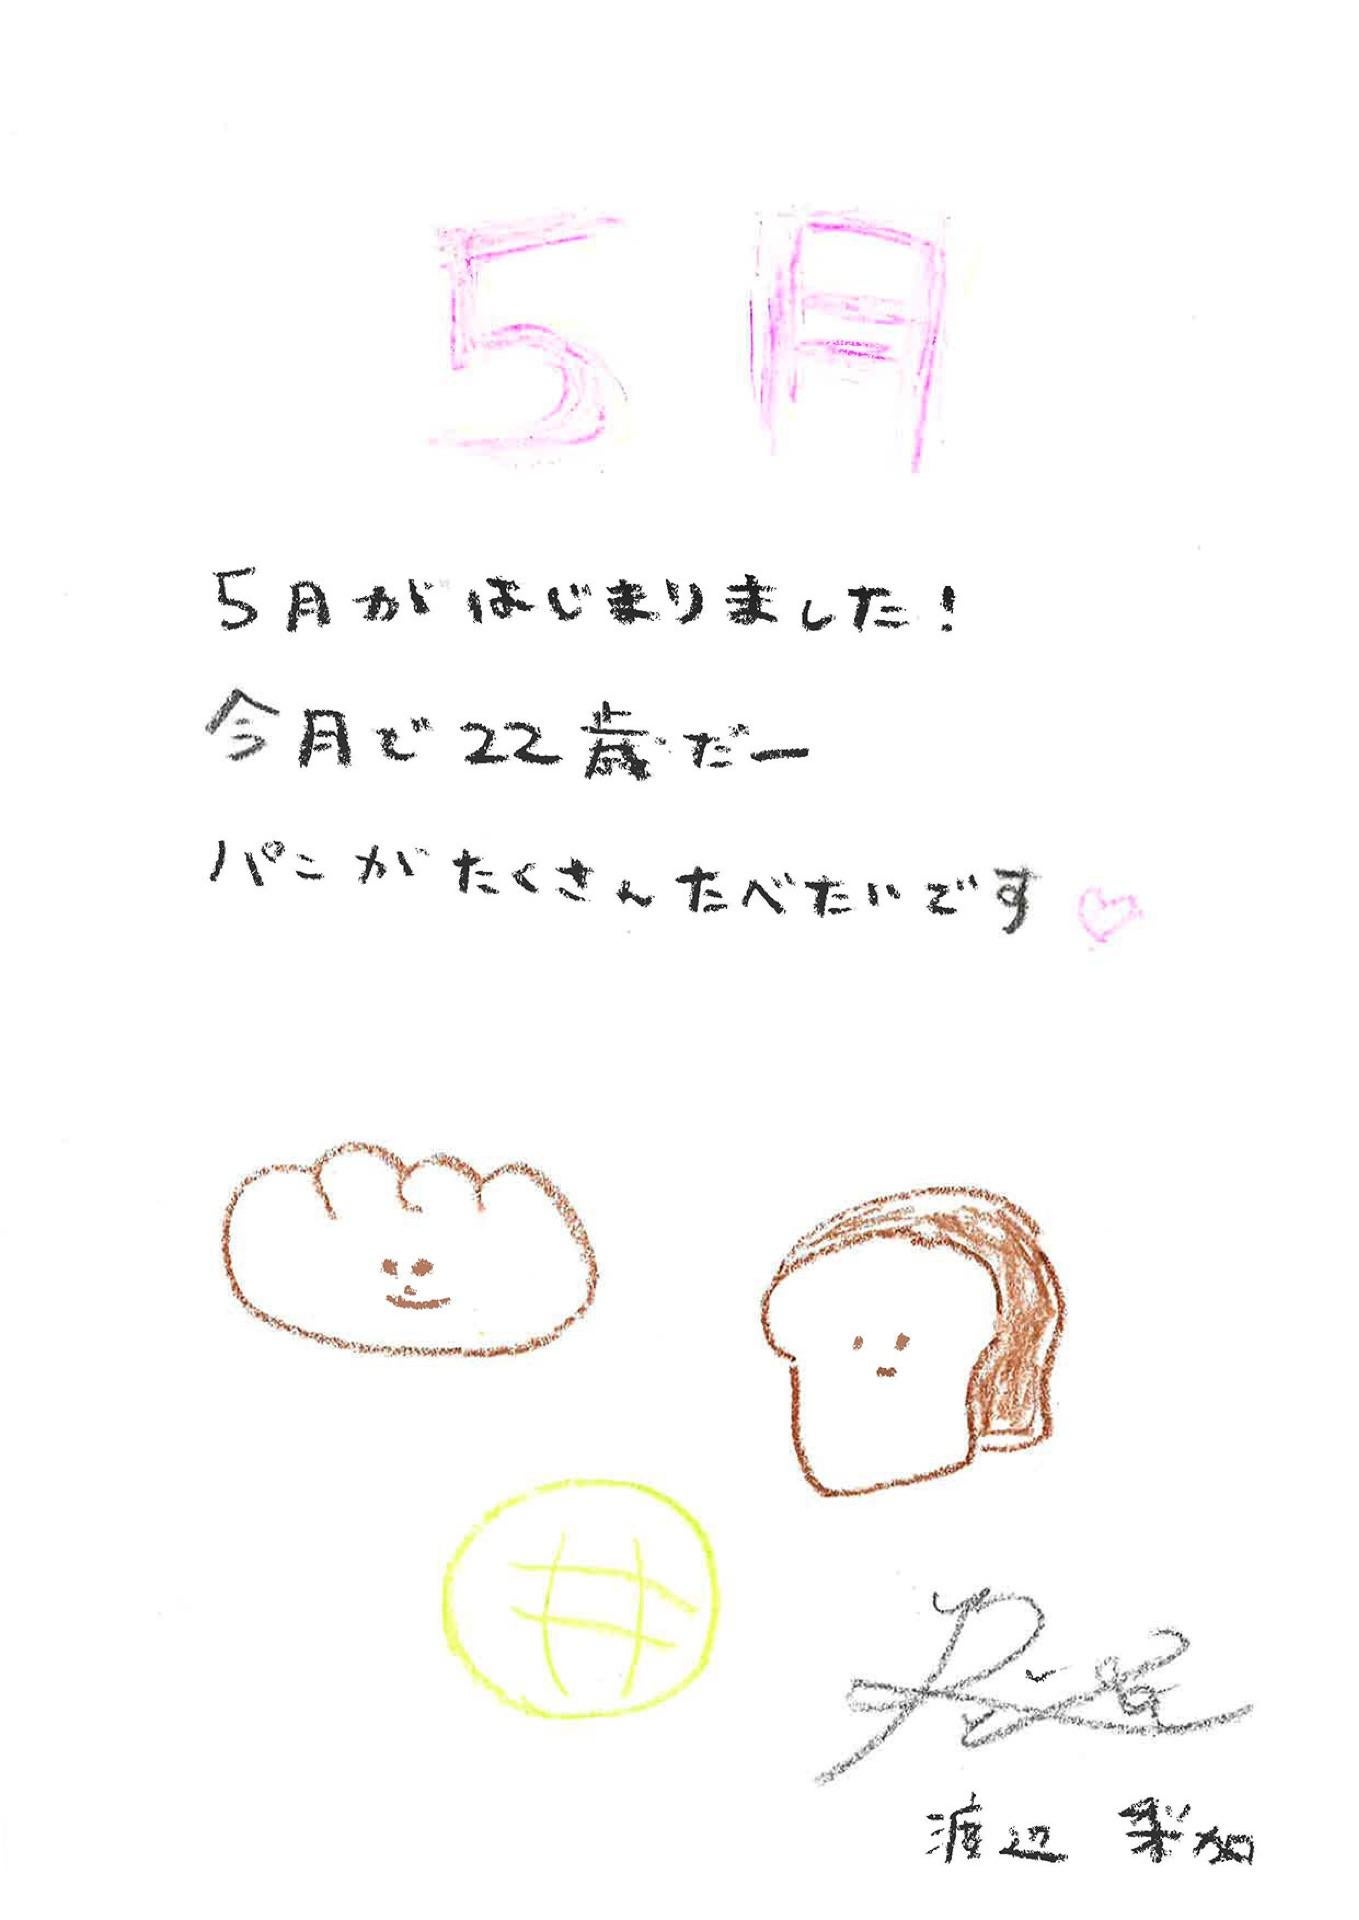 5月
5月がはじまりました!
今月で22歳だー
パンがたくさんたべたいです♡
渡辺 梨加